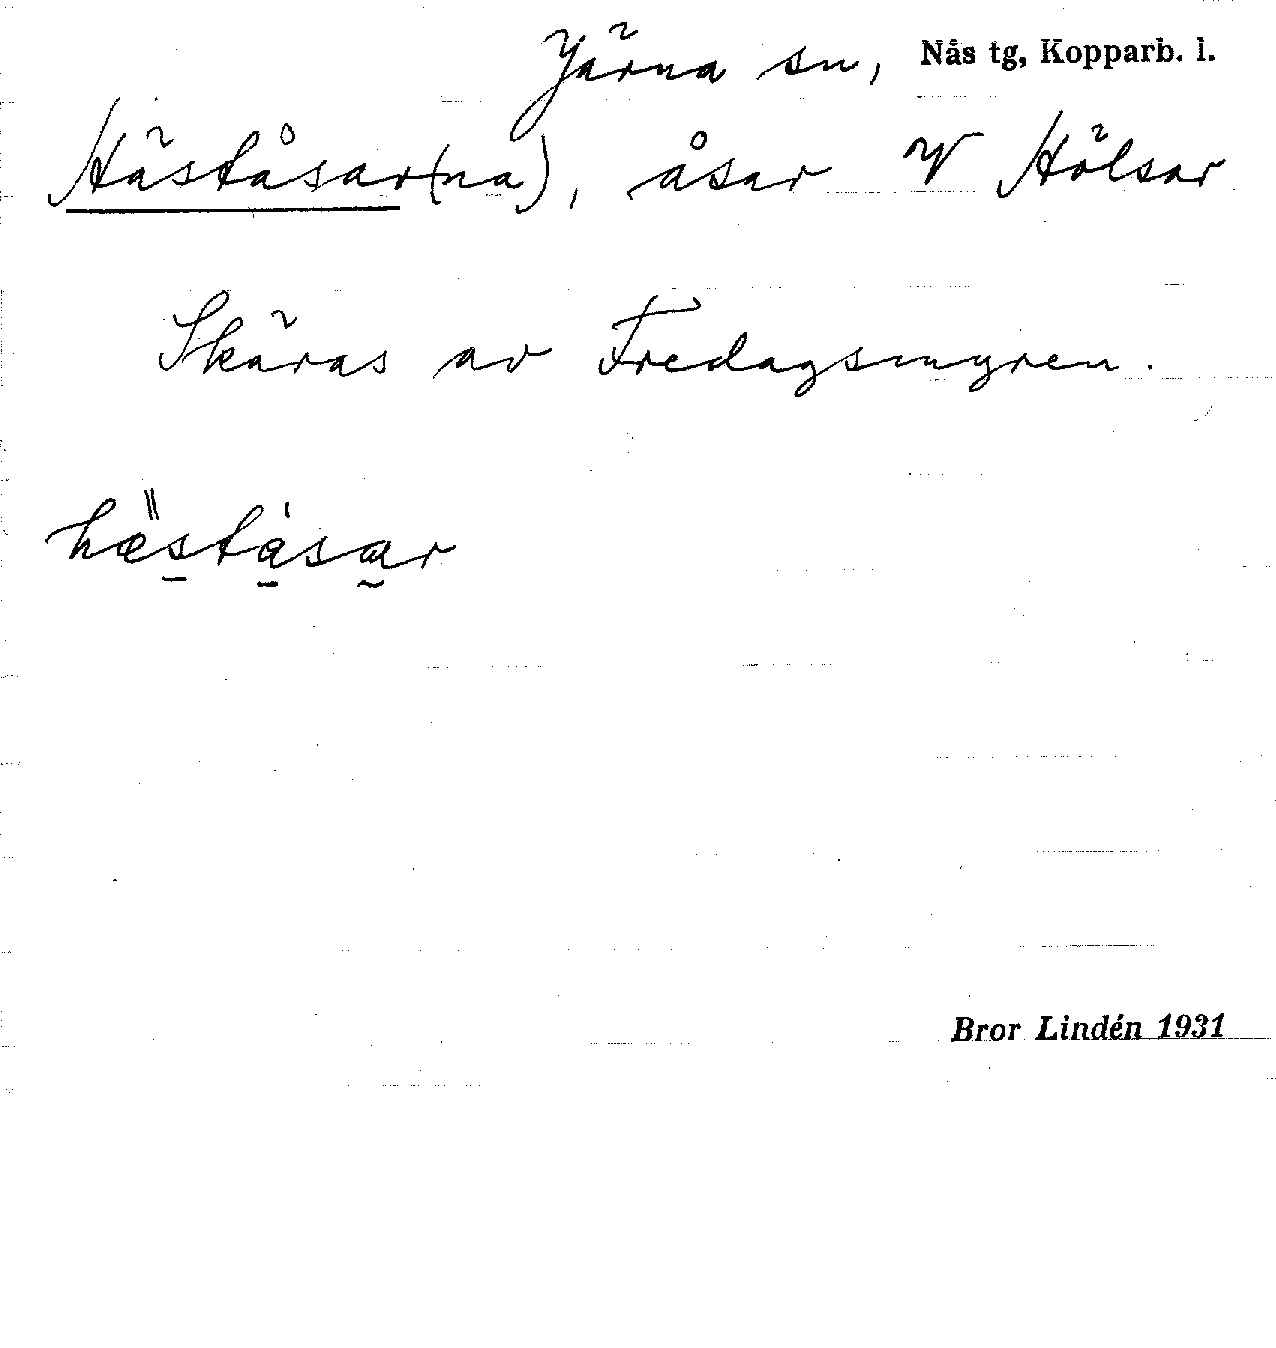 Järna sn, Nås tg, Kopparb. l.
Häståsar(na), åsar V Hölsar
Skäras av Fredagsmyren.
hæ̋ståsar
Bror Lindén 1931